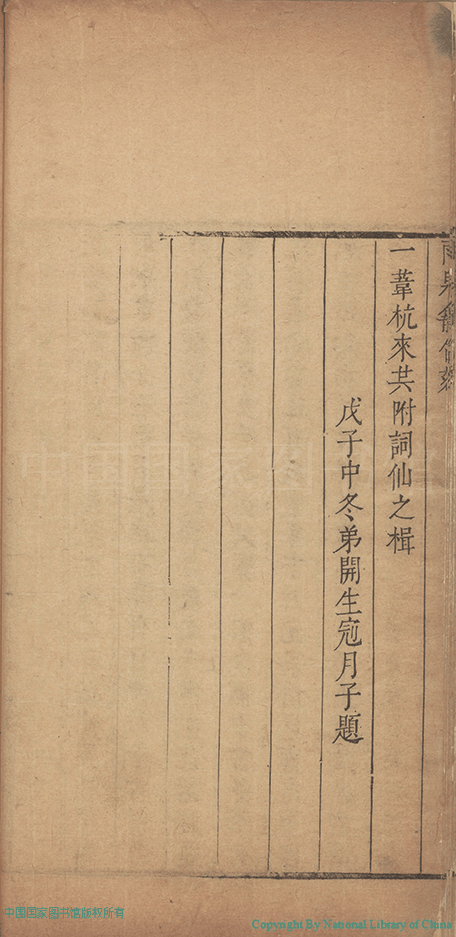 一葦杭來共附詞仙之楫
戊子中冬弟開生冦月子題
中国国家图书馆版权所有
Copyright By National Library of China